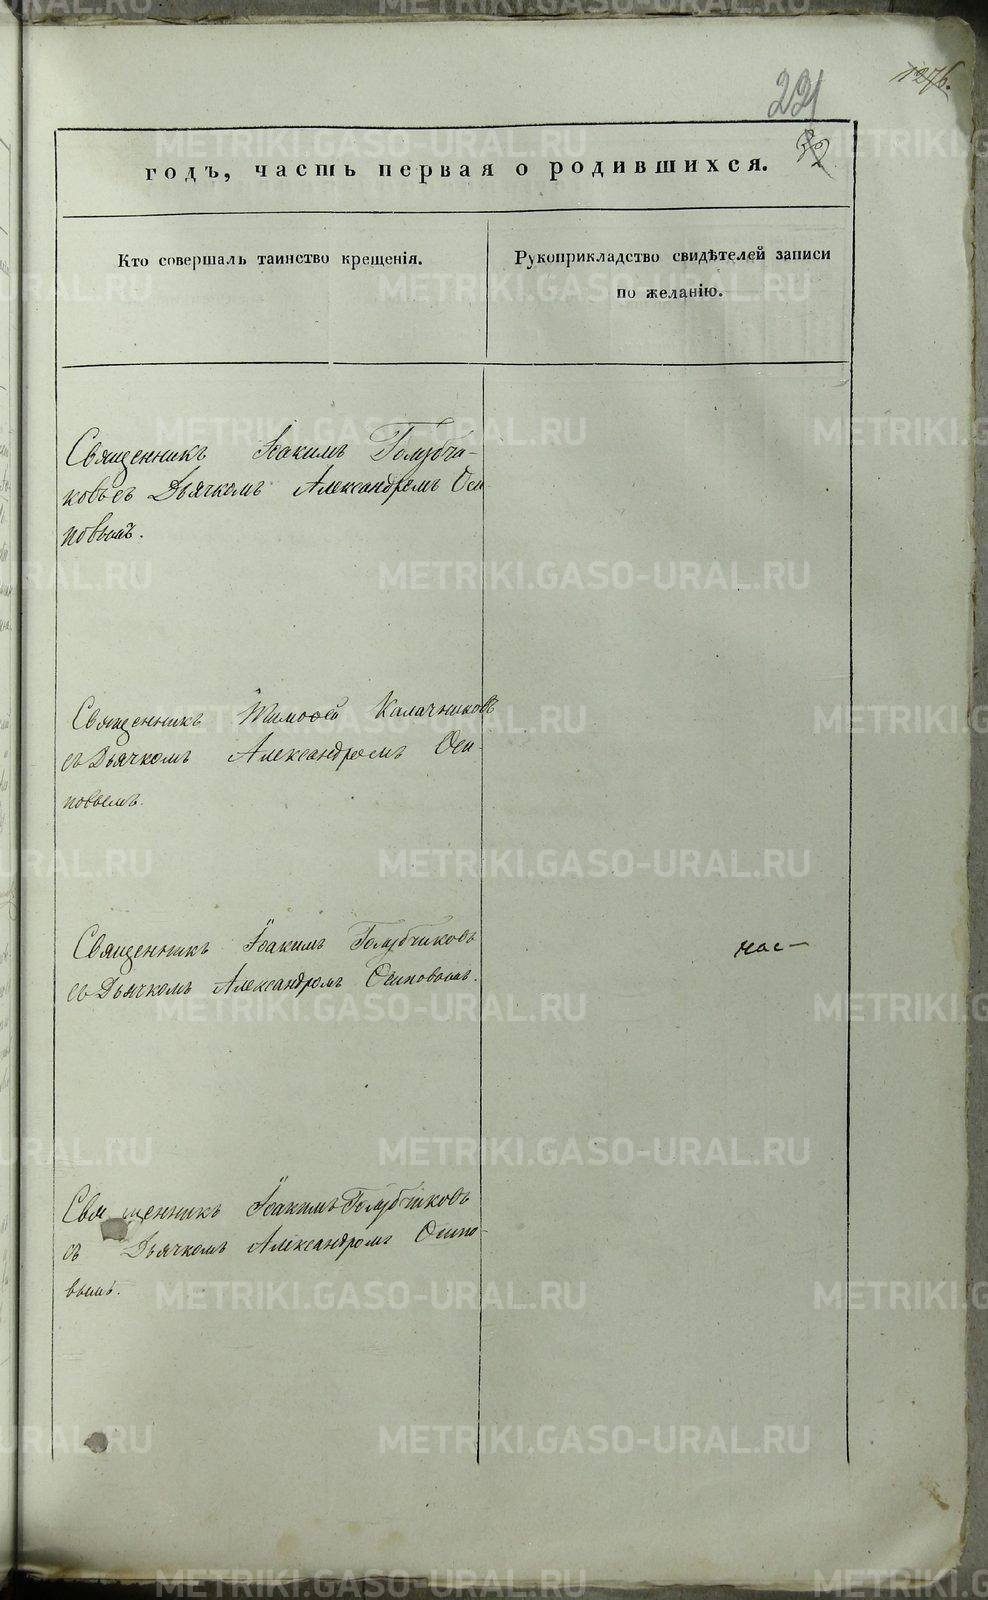 1276.
221
32
годъ, часть первая о родившихся.
Кто совершалъ таинство крещенія.
Рукоприкладство свидѣтелей записи
по желанію.
Священникъ Іоакимъ Голубчи-
ковъ съ Дьячкомъ Александромъ Оси
повымъ.
Священникъ Тимофей Калачниковъ
съ Дьячкомъ Александромъ Оси-
повымъ.
Священникъ Іоакимъ Голубчиковъ
съ Дьячкомъ Александромъ Осиповымъ.
нас-
Священникъ Іоакимъ Голубчиковъ
съ Дьячкомъ Александромъ Осипо-
вымъ.
METRIKI.GASO-URAL.RU